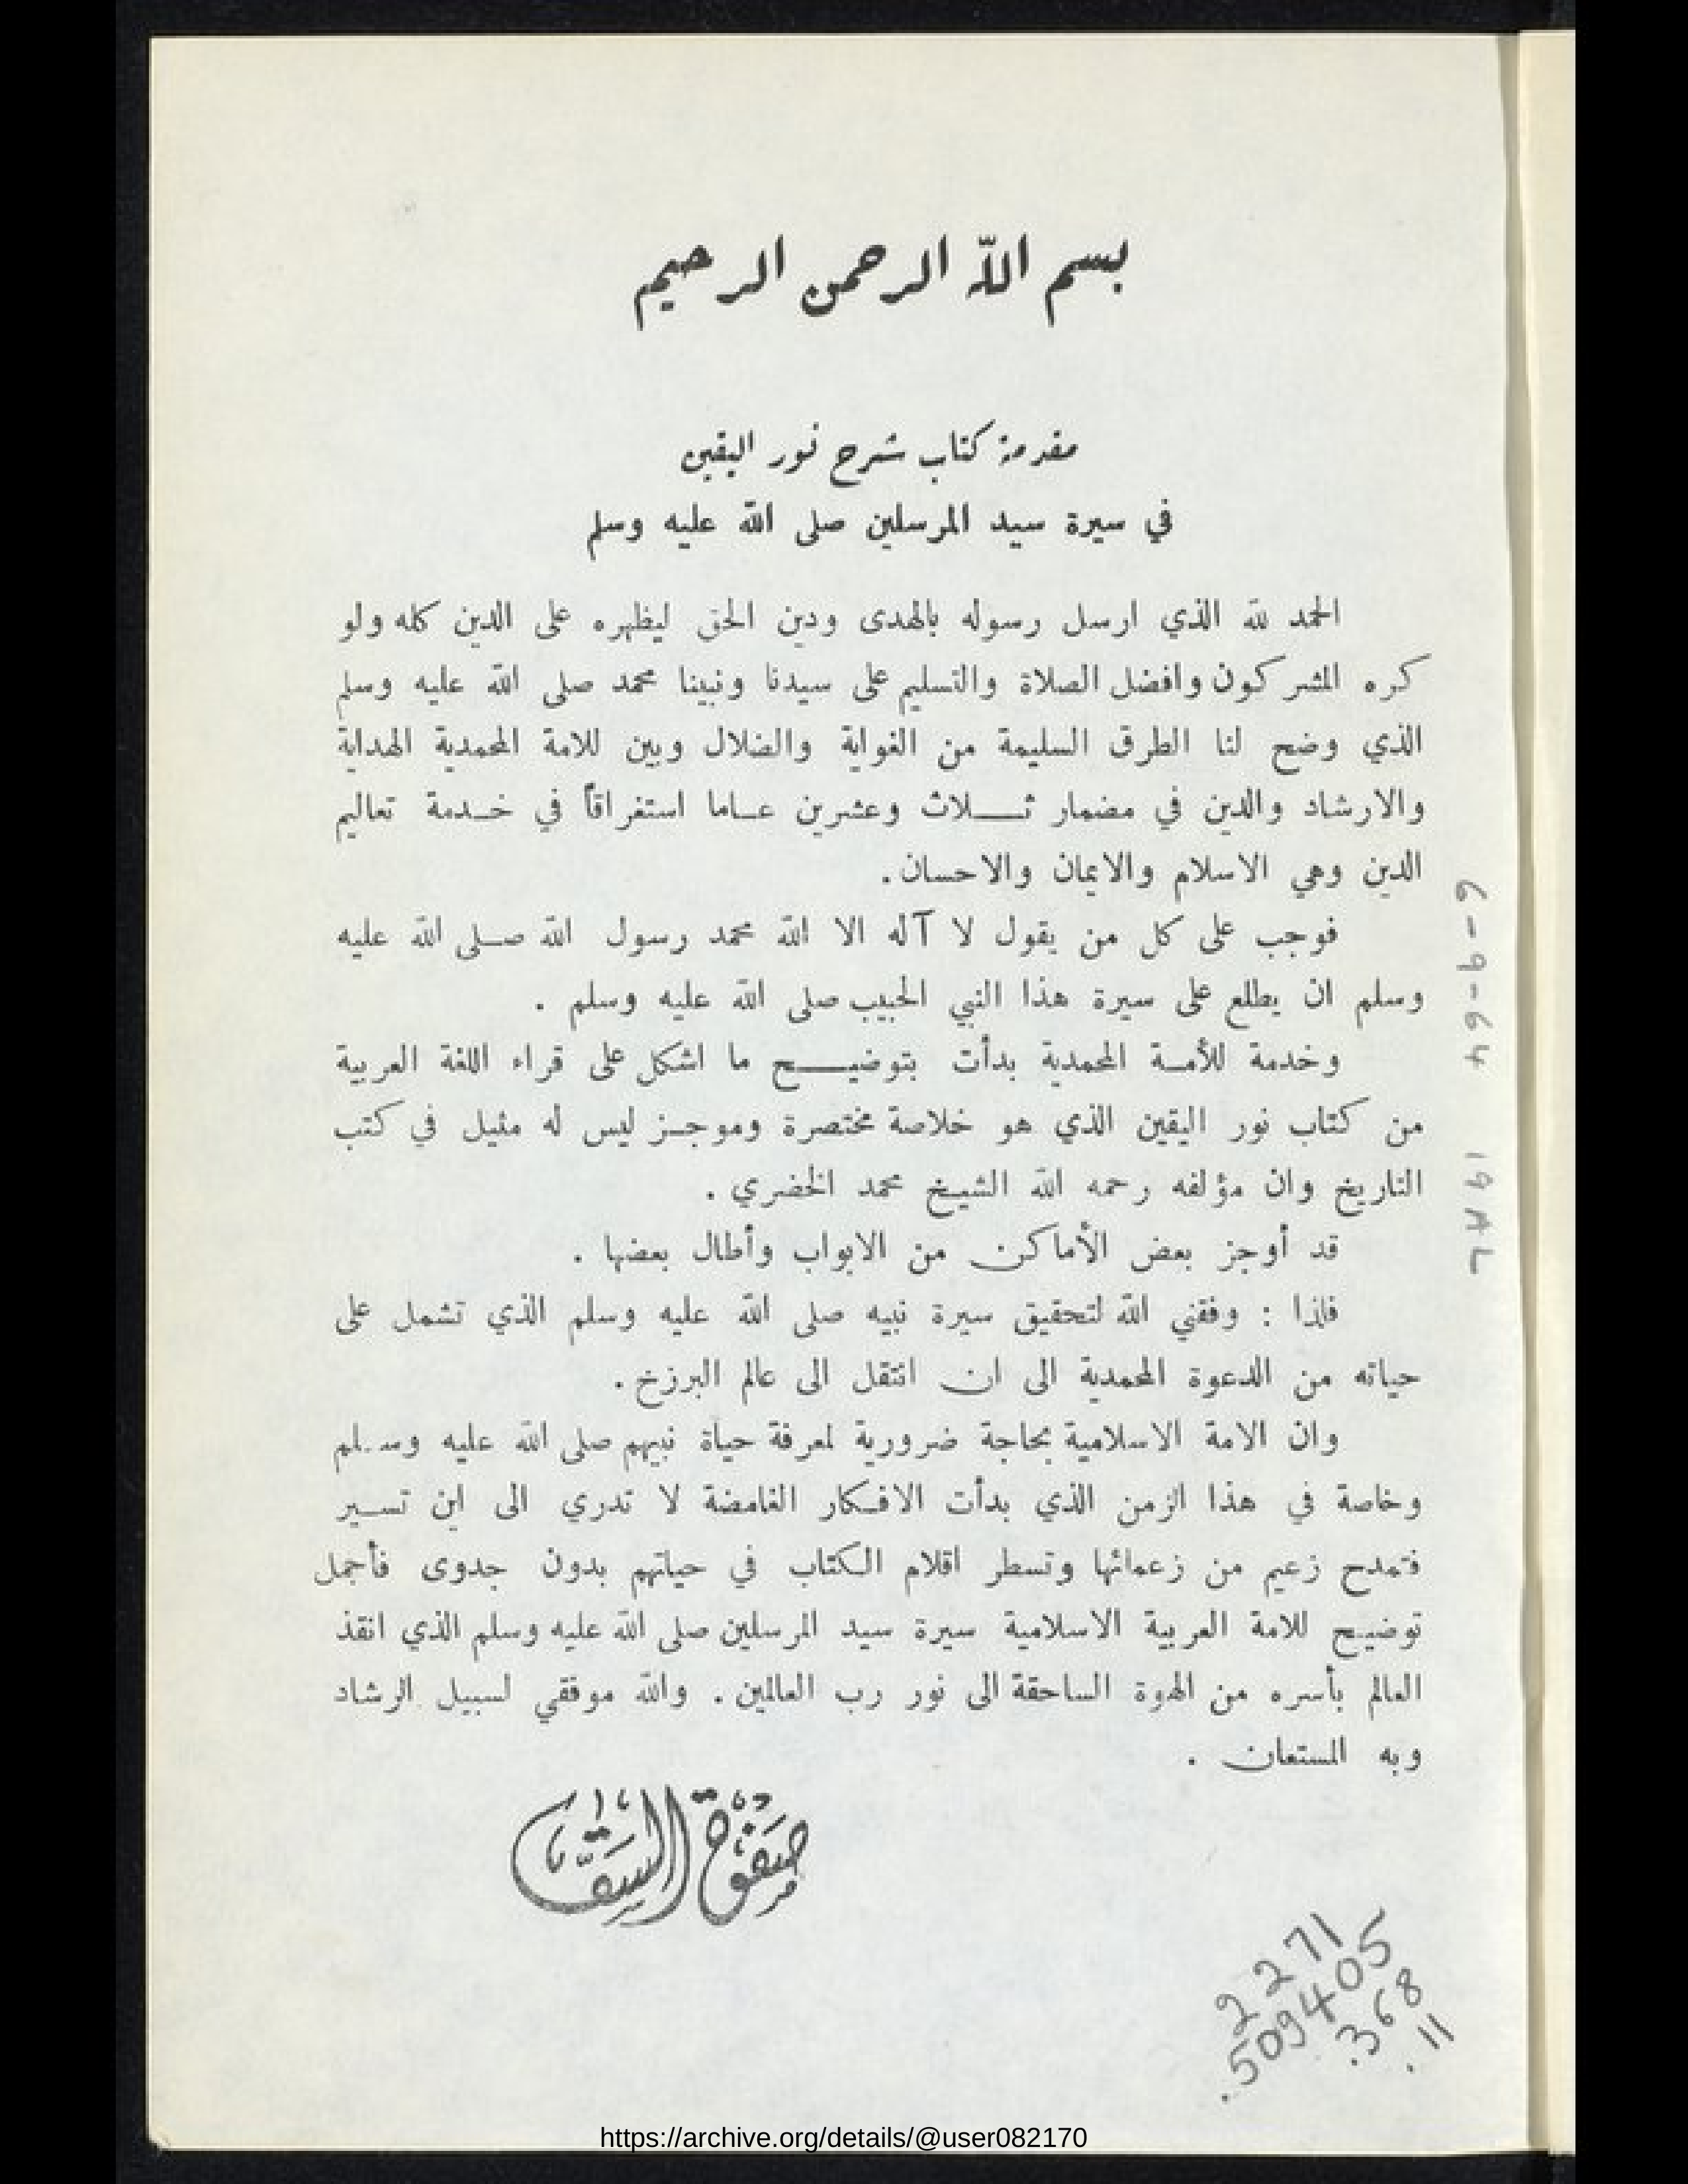 بسم اللّه الرحمن الرحيم
مقدمة كتاب شرح نور اليقين
في سيرة سيد المرسلين صلى الله عليه وسلم
الحمد لله الذي ارسل رسوله بالهدى ودين الحق ليظهره على الدين كله ولو
كره المشركون وافضل الصلاة والتسليم على سيدنا ونبينا محمد صلى الله عليه وسلم
الذي وضح لنا الطرق السليمة من الغواية والضلال وبين للامة المحمدية الهداية
والارشاد والدين في مضمار ثـــلاث وعشرين عـاما استغراقاً في خـدمة تعاليم
الدين وهي الاسلام والايمان والاحسان.
فوجب على كل من يقول لا آله الا الله محمد رسول الله صـلى الله عليه
وسلم ان يطلع على سيرة هذا النبي الحبيب صلى الله عليه وسلم .
وخدمة للأمـة المحمدية بدأت بتوضيـــح ما اشكل على قراء اللغة العربية
من كتاب نور اليقين الذي هو خلاصة مختصرة وموجـز ليس له مثيل في كتب
التاريخ وان مؤلفه رحمه الله الشيخ محمد الخضري .
قد أوجز بعض الأماكن من الابواب وأطال بعضها .
فاذا : وفقني الله لتحقيق سيرة نبيه صلى الله عليه وسلم الذي تشمل على
حياته من الدعوة المحمدية الى ان انتقل الى عالم البرزخ .
وان الامة الاسلامية بحاجة ضرورية لمعرفة حياة نبيهم صلى الله عليه وسلم
وخاصة في هذا الزمن الذي بدأت الافـكار الغامضة لا تدري الى اين تسـير
فتمدح زعيم من زعمائها وتسطر اقلام الـكتاب في حياتهم بدون جدوى فأجمل
توضيـح للامة العربية الاسلامية سيرة سيد المرسلين صلى الله عليه وسلم الذي انقذ
العالم بأسره من الهوة الساحقة الى نور رب العالمين . والله موفقي لسبيل الرشاد
وبه المستعان .
صفوة السقا
2271
.509405
.368
.11
6-9-64
https://archive.org/details/@user082170